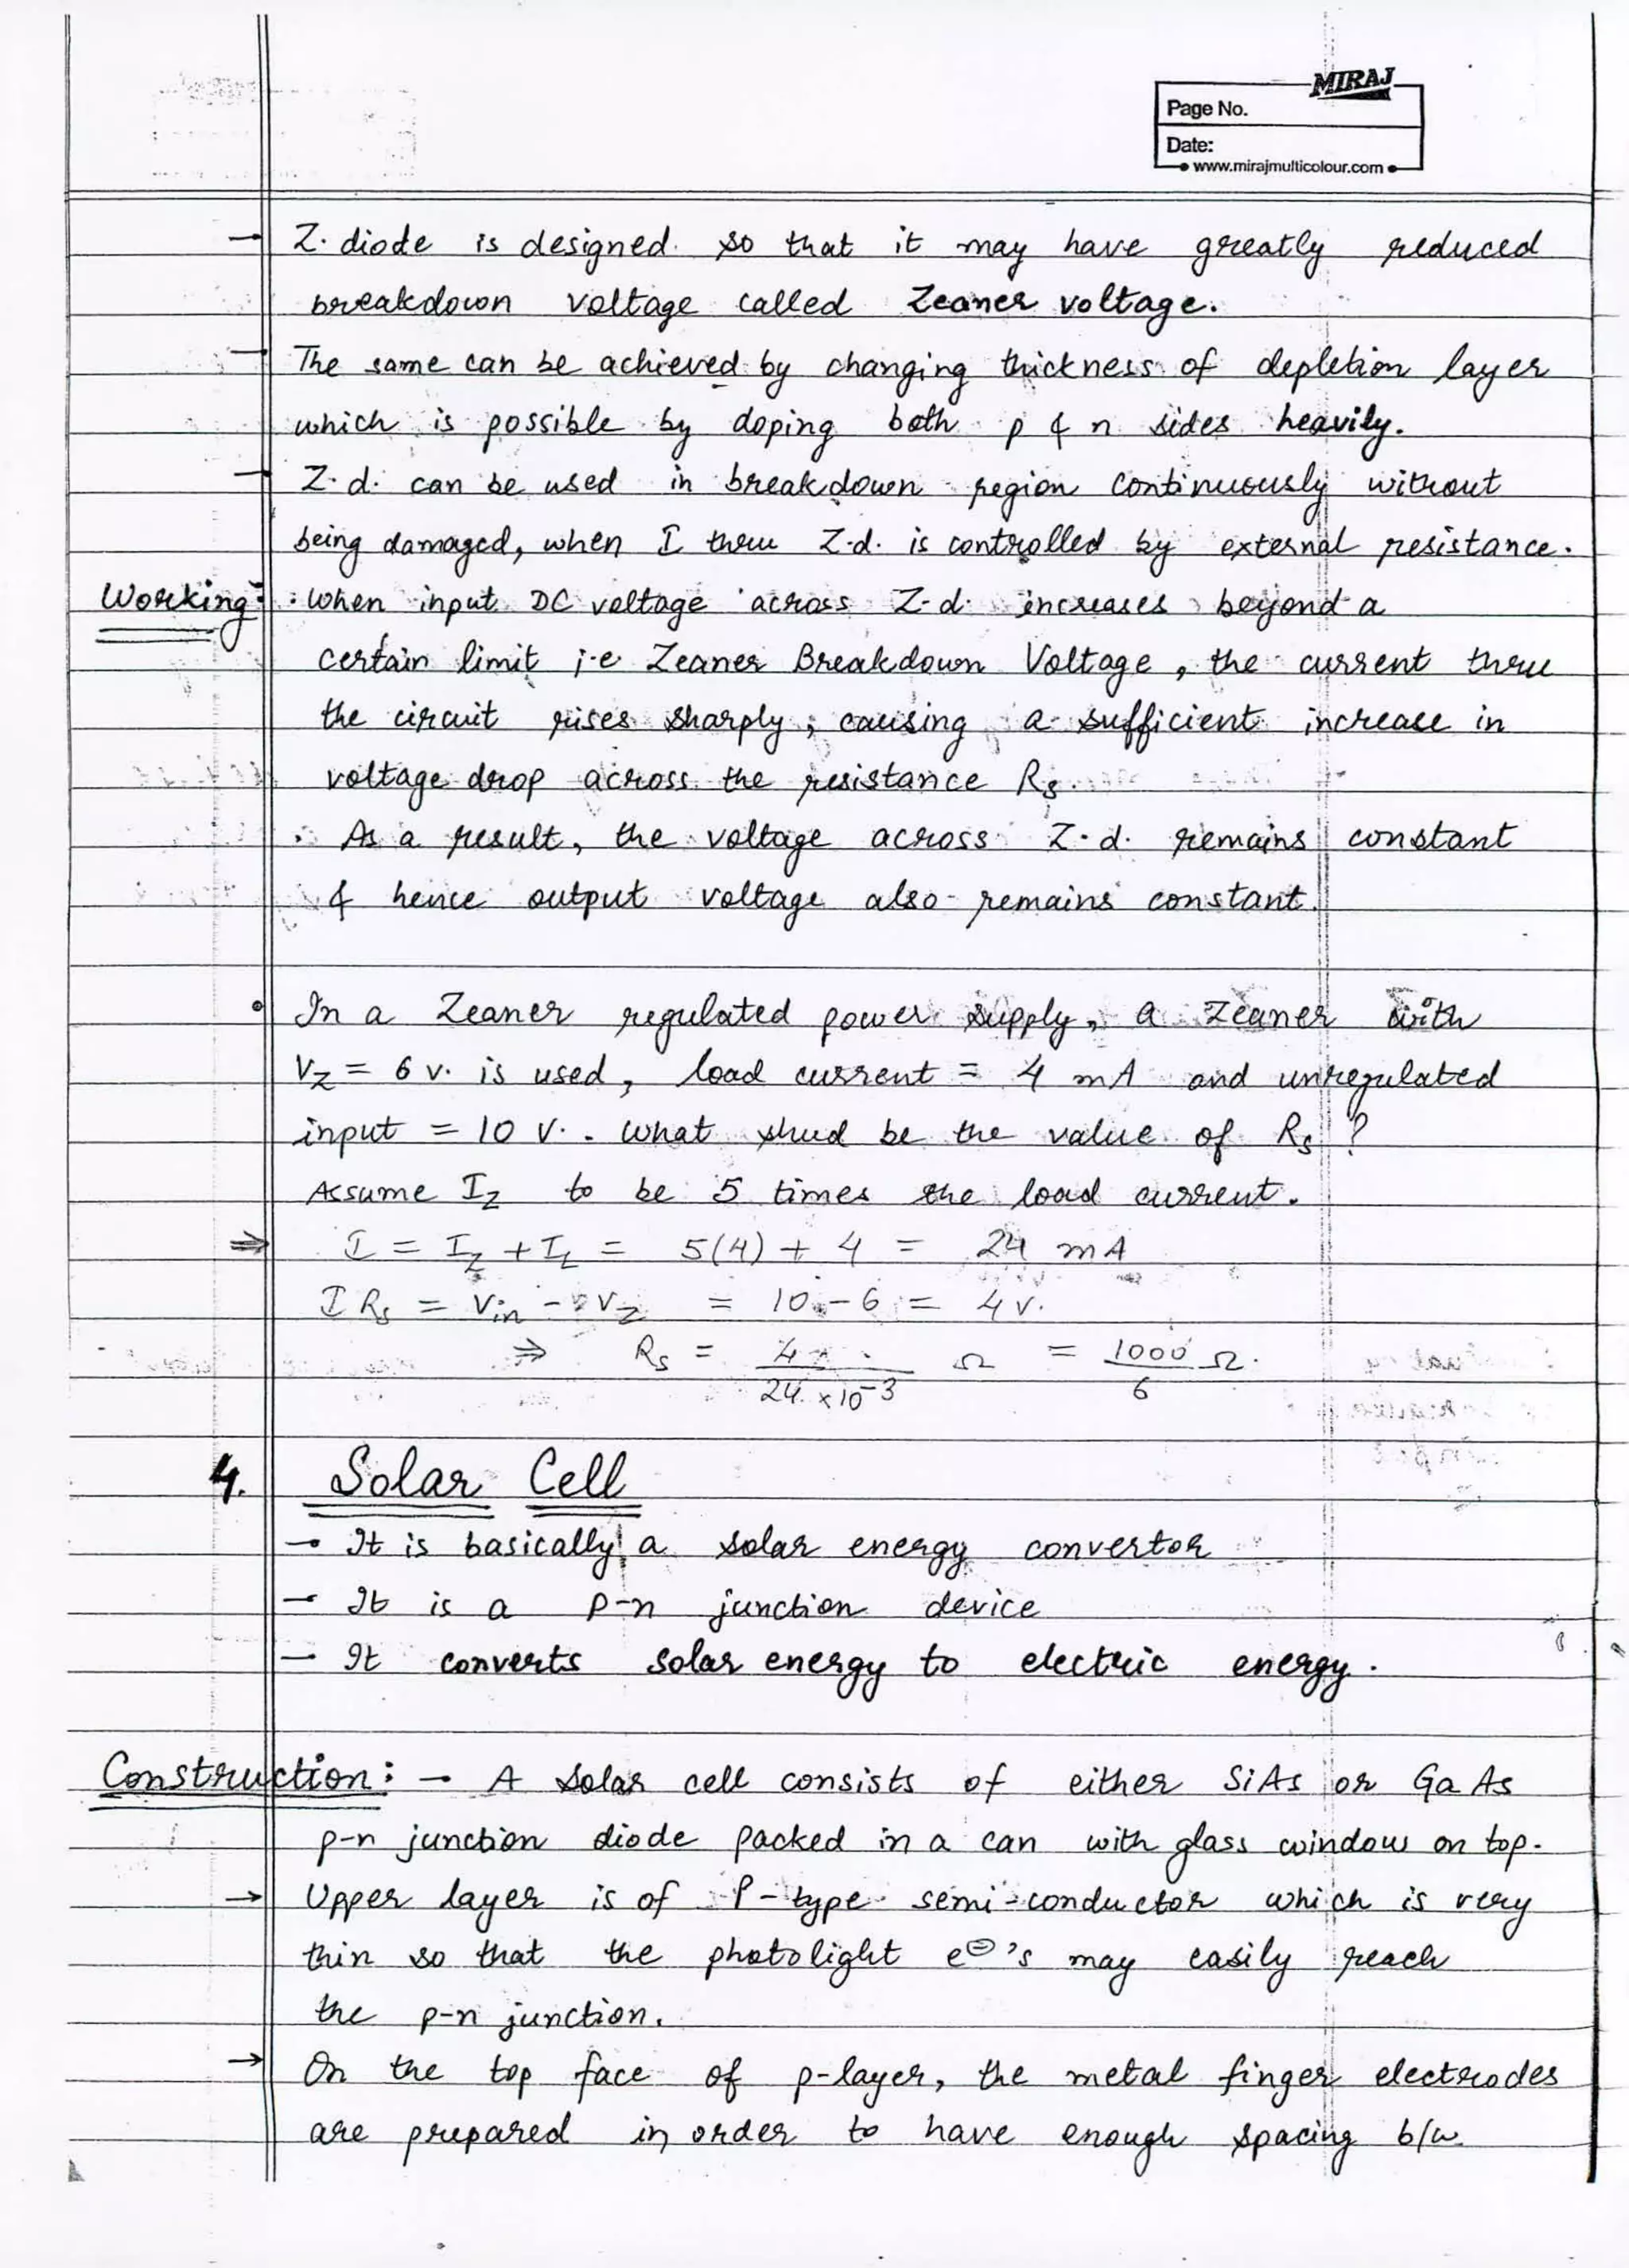 MIRAJ
Page No.
Date:
www.mirajmulticolour.com
→ Z. diode is designed so that it may have greatly reduced
breakdown voltage called Zeaner voltage.
→ The same can be achieved by changing thickness of depletion layer
which is possible by doping both p & n sides heavily.
→ Z.d. can be used in breakdown region continuously without
being damaged, when I thru Z.d. is controlled by external resistance.
Working: When input DC voltage across Z.d. increases beyond a
certain limit i.e Zeaner Breakdown Voltage, the current thru
the circuit rises sharply, causing a sufficient increase in
voltage drop across the resistance Rs.
∴ As a result, the voltage across Z.d. remains constant
& hence output voltage also remains constant.
• In a Zeaner regulated power supply, a Zeaner with
Vz = 6 v. is used, load current = 4 mA and unregulated
input = 10 V. . What shud be the value of Rs ?
Assume Iz to be 5 times the load current.
⇒ I = Iz + IL = 5(4) + 4 = 24 mA
I Rs = Vin - Vz = 10 - 6 = 4 v.
⇒ Rs = 4 / 24 × 10⁻³ Ω = 1000 / 6 Ω.
4. Solar Cell
→ It is basically a solar energy convertor
→ It is a p-n junction device
→ It converts solar energy to electric energy.
Construction: → A solar cell consists of either SiAs or GaAs
p-n junction diode packed in a can with glass window on top.
→ Upper layer is of P-type semi-conductor which is very
thin so that the photolight e⊖'s may easily reach
the p-n junction.
→ On the top face of p-layer, the metal finger electrodes
are prepared in order to have enough spacing b/w